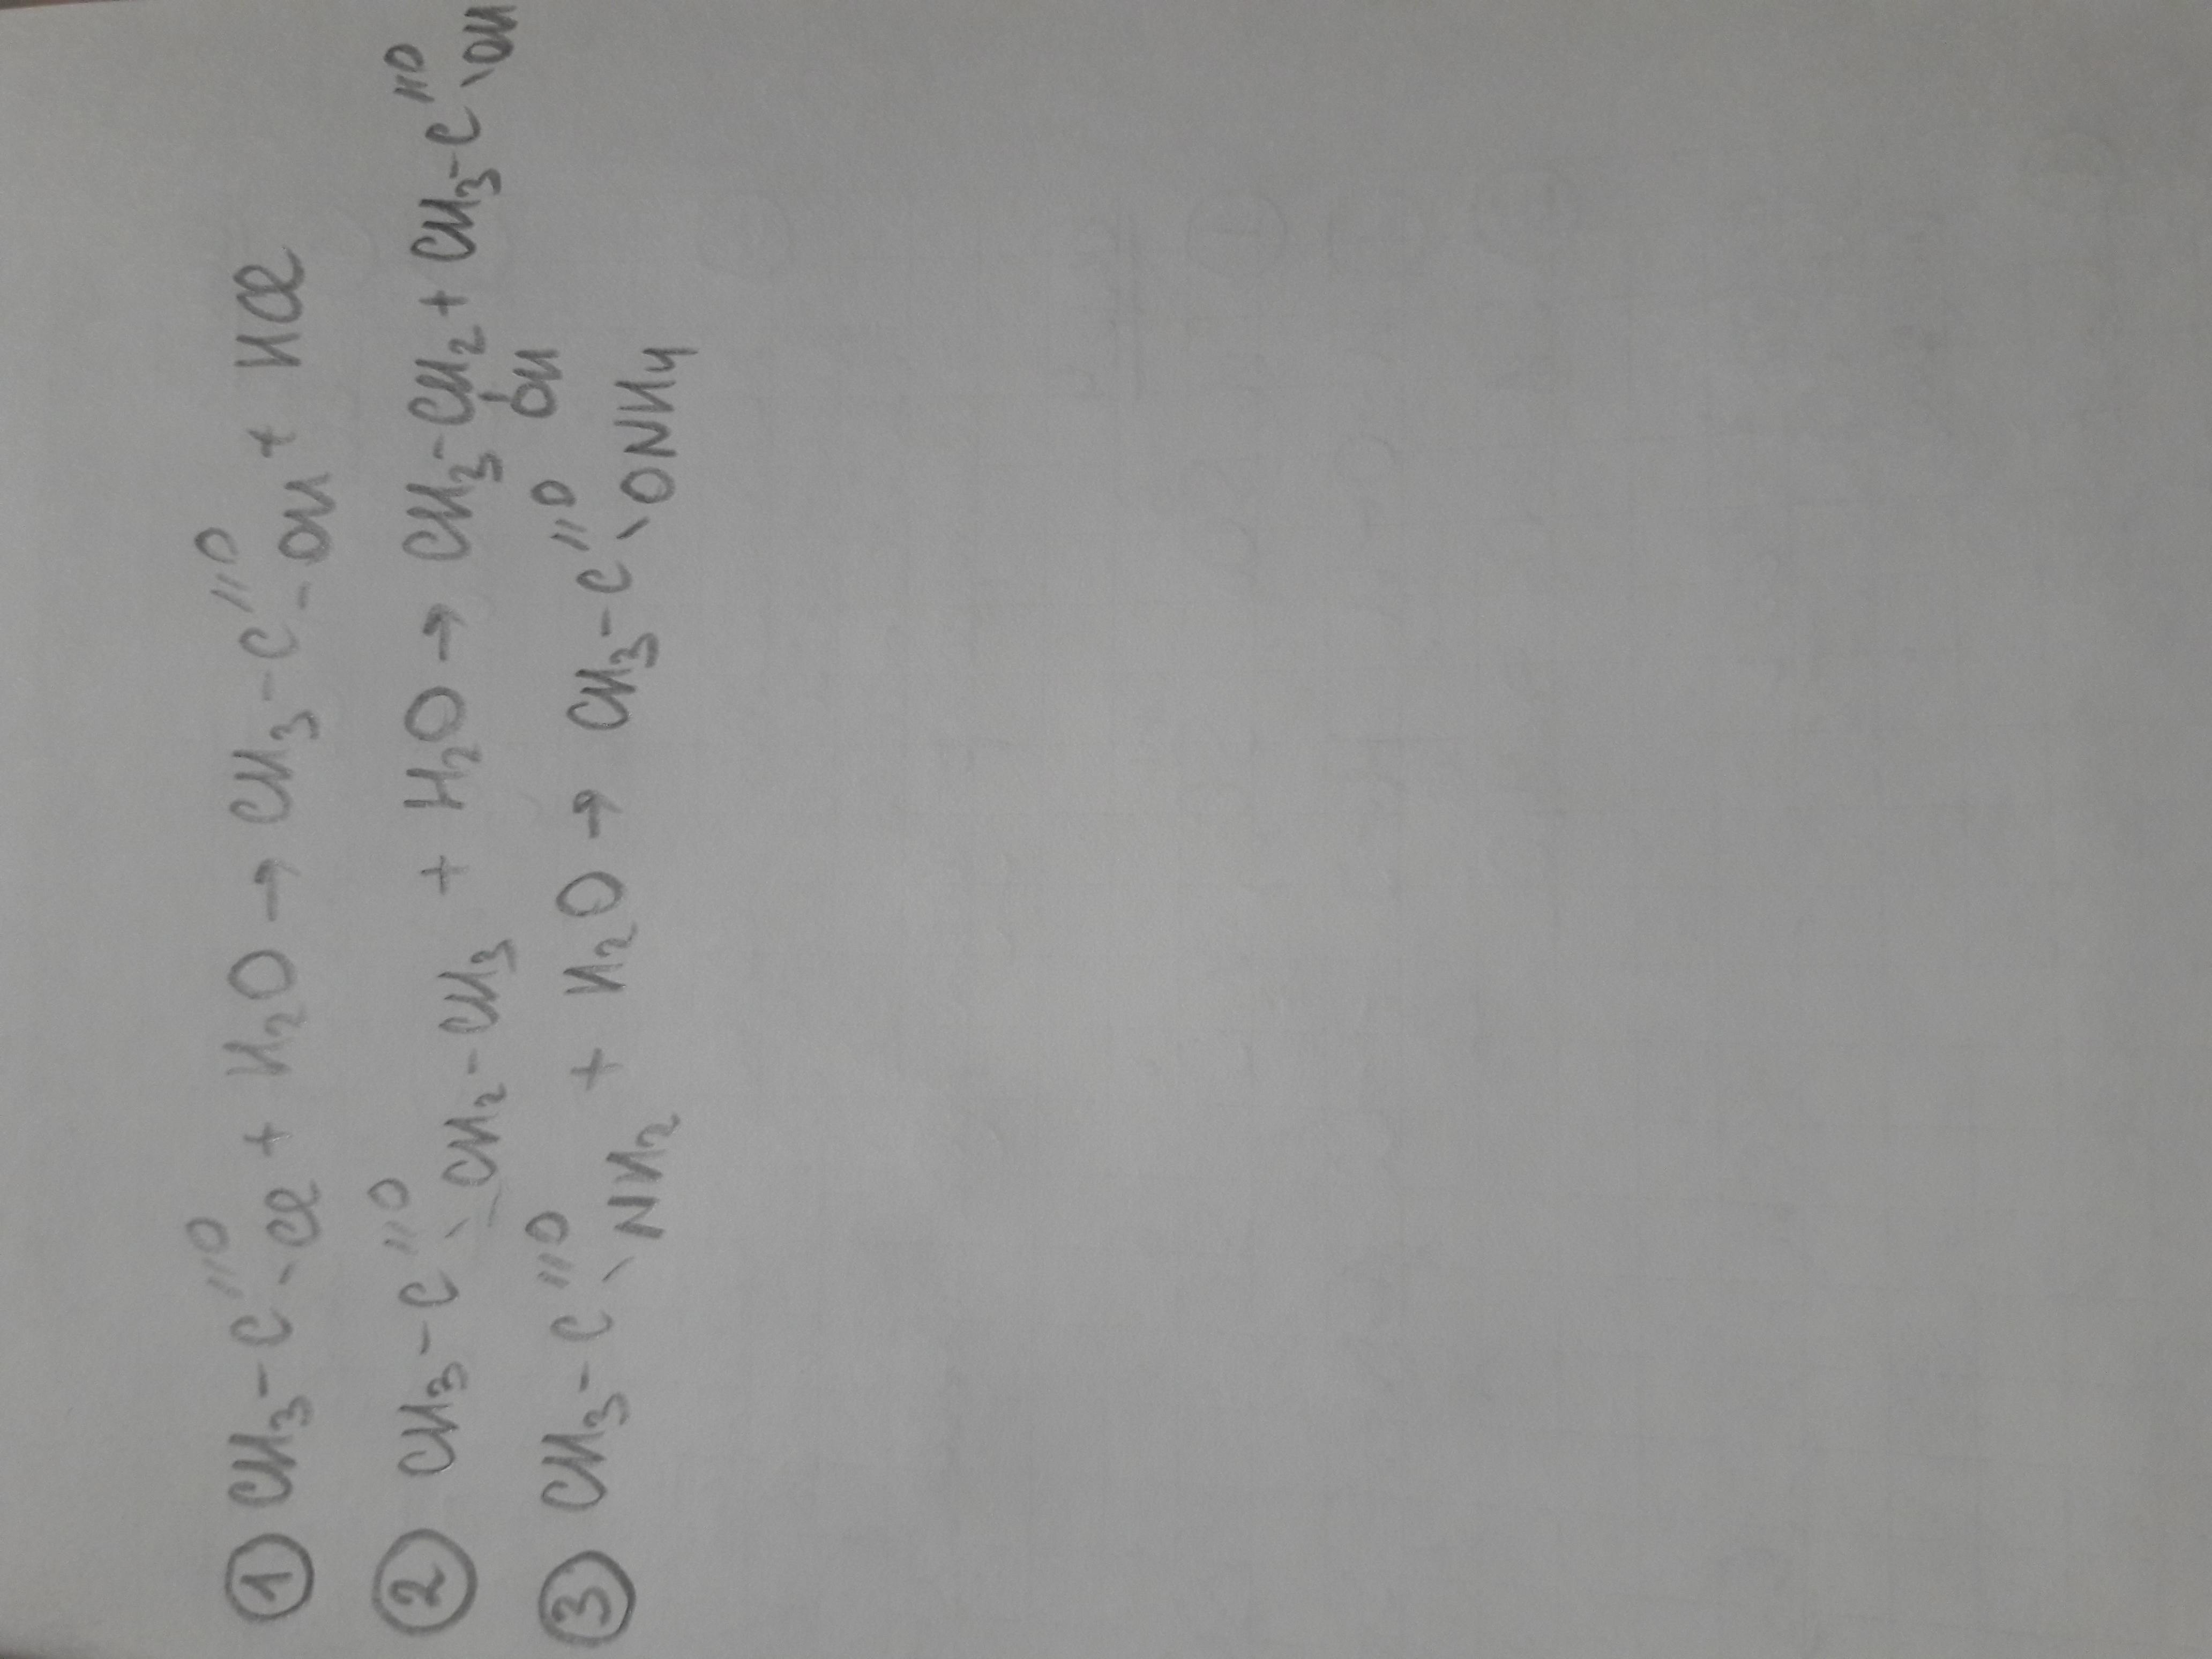 ① CH₃-C(=O)-Cl + H₂O → CH₃-C(=O)-OH + HCl
② CH₃-C(=O)\CH₂-CH₃ + H₂O → CH₃-CH₂(OH) + CH₃-C(=O)\OH
③ CH₃-C(=O)\NH₂ + H₂O → CH₃-C(=O)\ONH₄